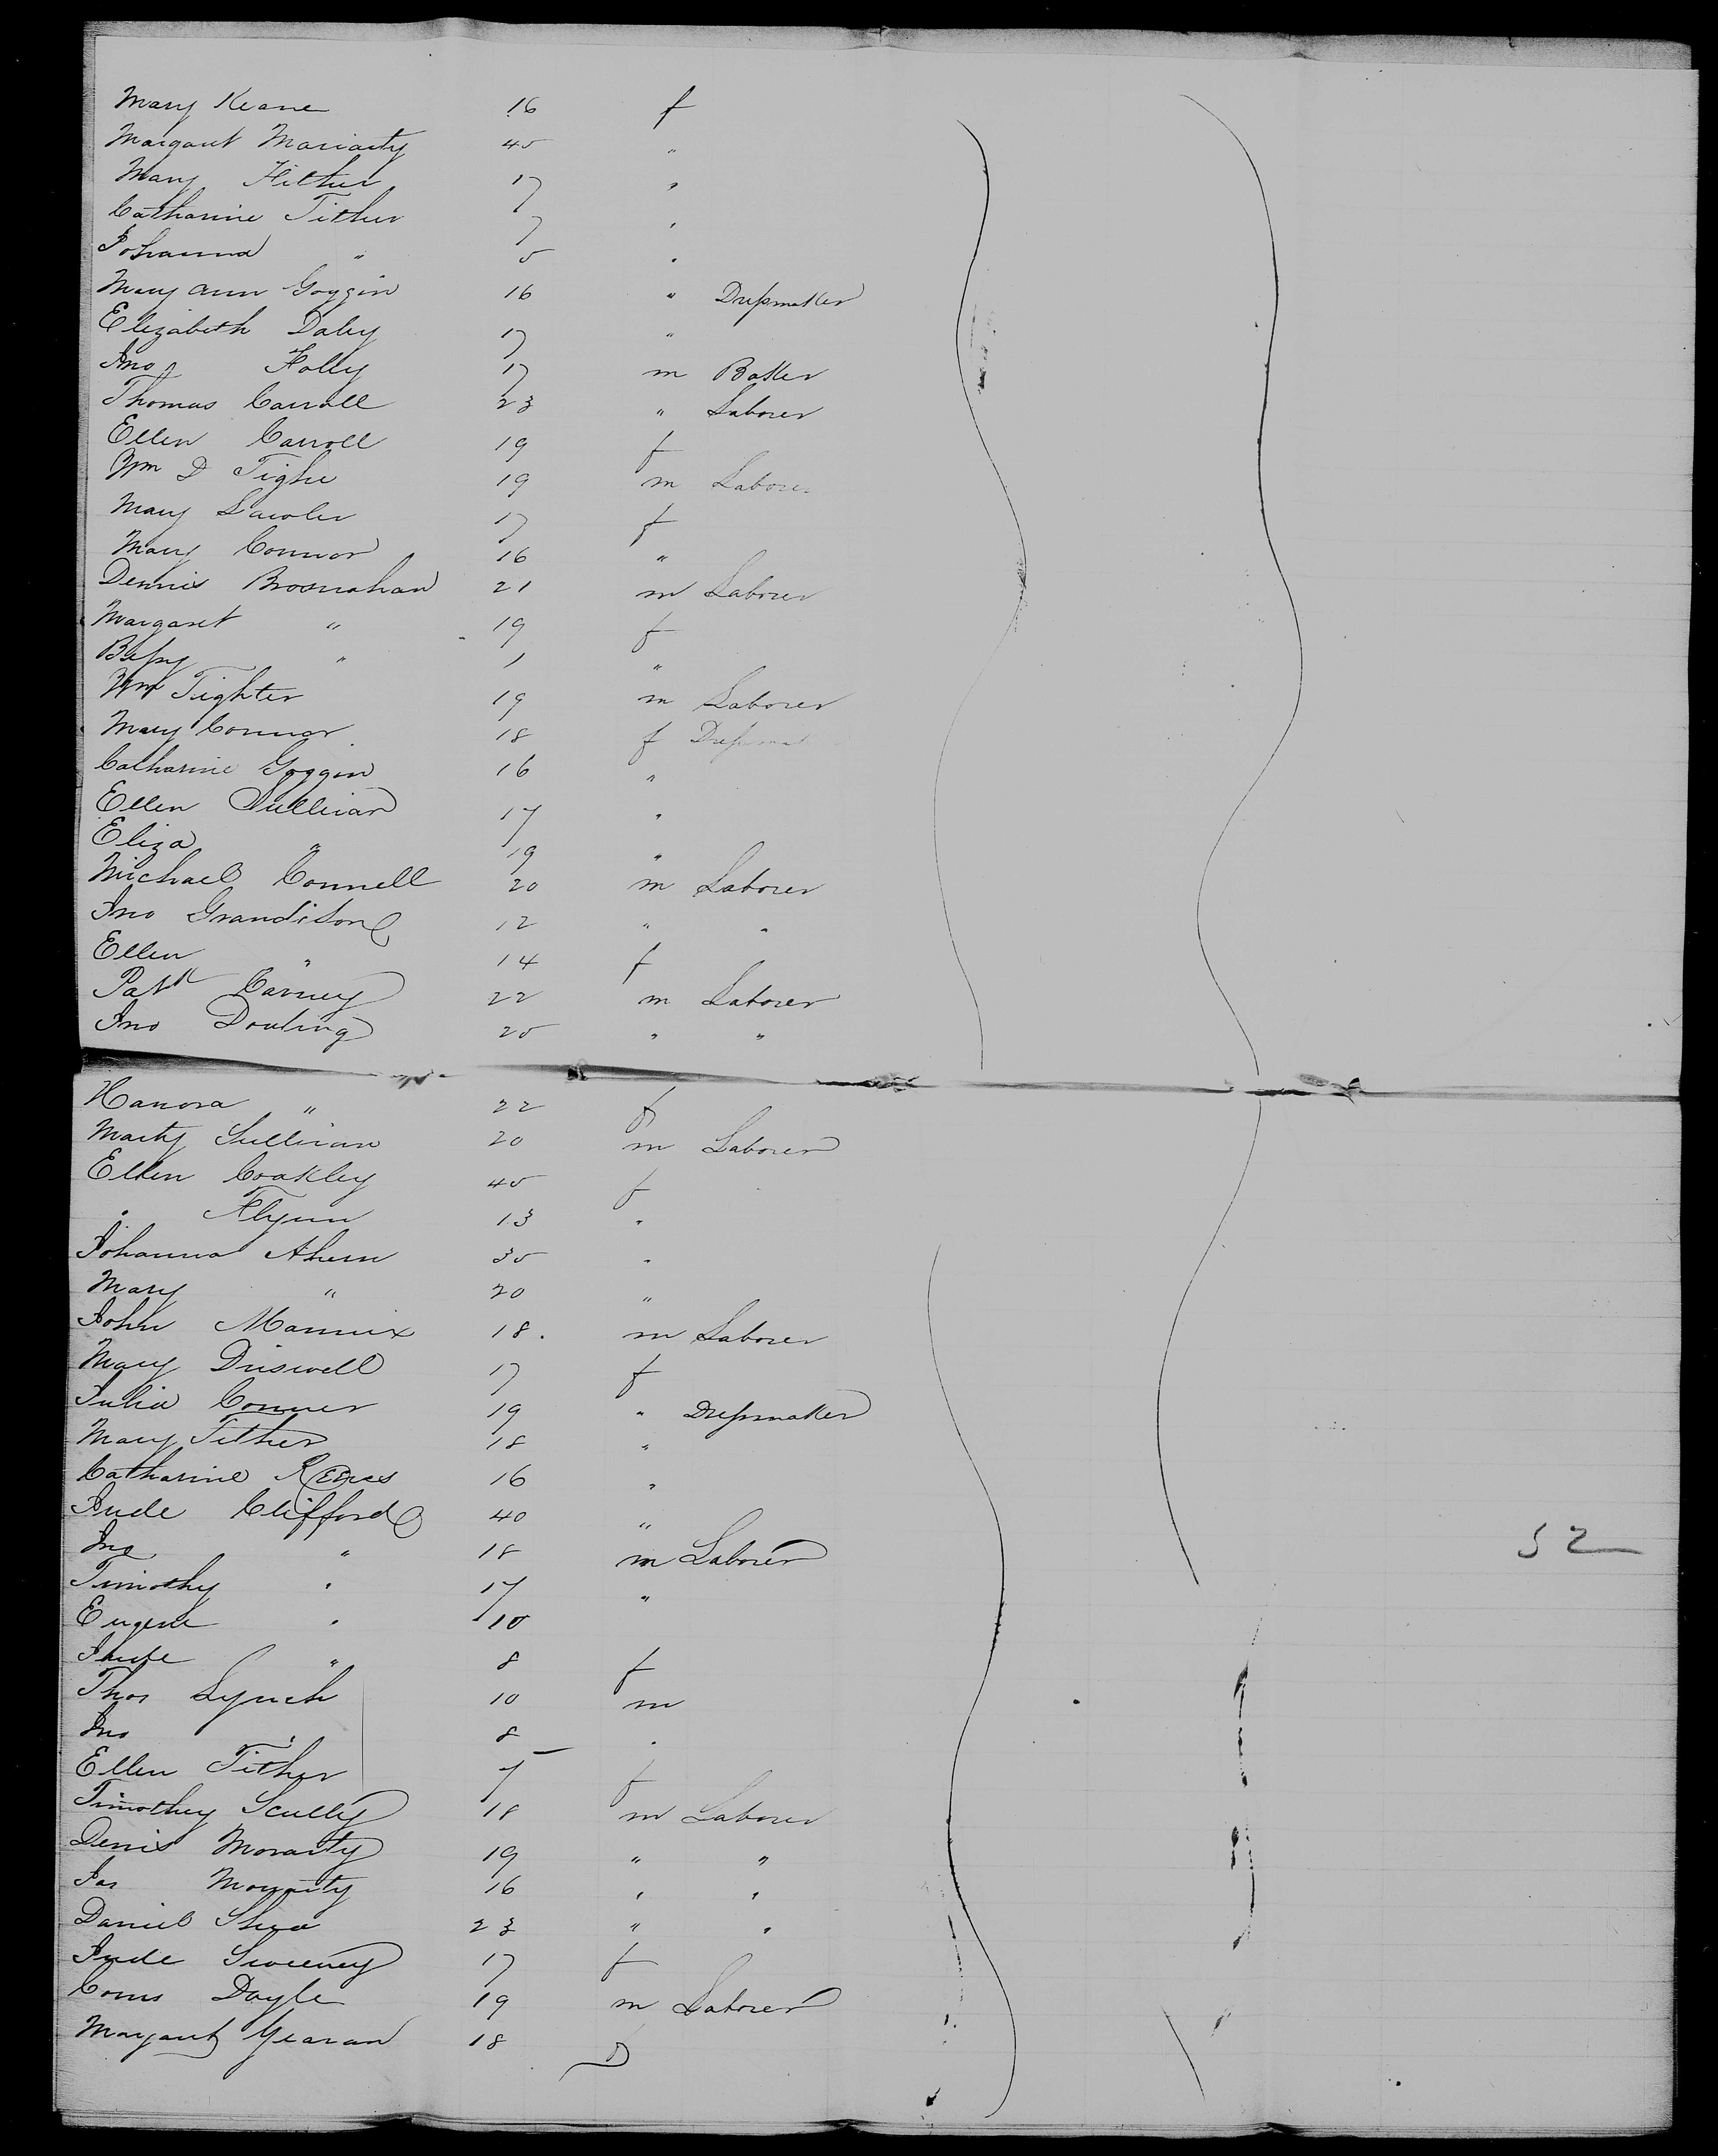 Mary Keane 16 f
Margaret Moriarty 45 "
Mary Fither 17 "
Catharine Tither 7 "
Johanna " 5 "
Mary Ann Goggin 16 " Dressmaker
Elizabeth Daley 17 "
Jno Folly 17 m Baker
Thomas Carroll 23 " Laborer
Ellen Carroll 19 f
Wm D Tighe 19 m Laborer
Mary Lawler 17 f
Mary Connor 16 "
Dennis Brosnahan 21 m Laborer
Margaret " 19 f
Bessy " 1 "
Wm Tighter 19 m Laborer
Mary Connor 18 f Dressmat
Catharine Goggin 16 "
Ellen Sullivan 17 "
Eliza " 19 "
Michael Connell 20 m Laborer
Jno Grandison 12 " "
Ellen " 14 f
Patk Carney 22 m Laborer
Jno Dowling 25 " "
Hanora " 22 f
Marty Sullivan 20 m Laborer
Ellen Coakley 45 f
" Flynn 13 "
Johanna Ahern 35 "
Mary " 20 "
John Mannix 18. m Laborer
Mary Driscoll 17 f
Julia Conner 19 " Dressmaker
Mary Tither 18 "
Catharine 16 "
Jude Clifford 40 "
Jno " 18 m Laborer
Timothy " 17 "
Eugene " 10
Jude " 8 f
Thos Lynch 10 m
Jno " 8 "
Ellen Tither 7 f
Timothy Scully 18 m Laborer
Denis Morarty 19 " "
Jas Moriarty 16 " "
Daniel Shea 23 " "
Jude Sweeney 17 f
Corns Doyle 19 m Laborer
Margaret 18 f
52